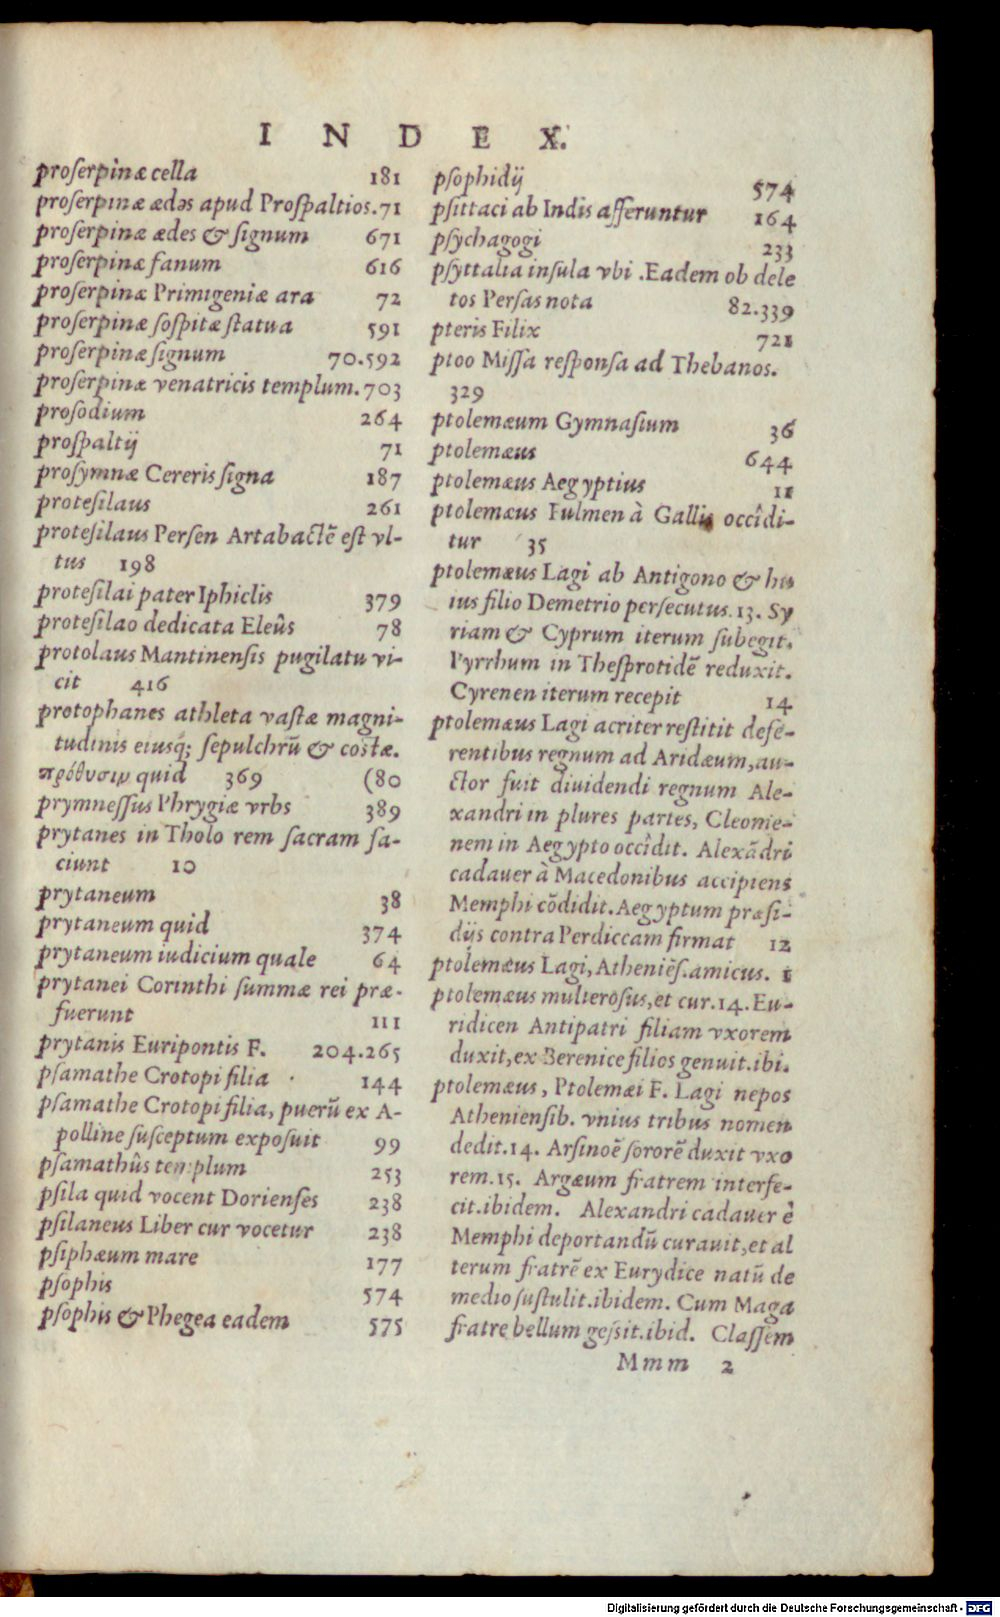 INDEX.
proserpinæ cella 181
proserpinæ ædes apud Prospaltios. 71
proserpinæ ædes & signum 671
proserpinæ fanum 616
proserpinæ Primigeniæ ara 72
proserpinæ sospitæ statua 591
proserpinæ signum 70.592
proserpinæ venatricis templum. 703
prosodium 264
prospaltij 71
prosymnæ Cereris signa 187
protesilaus 261
protesilaus Persen Artabactē est vl-
tus 198
protesilai pater Iphiclis 379
protesilao dedicata Eleûs 78
protolaus Mantinensis pugilatu vi-
cit 416
protophanes athleta vastæ magni-
tudinis eiusq; sepulchrū & costæ.
πρόθυσιμ quid 369 (80
prymnessus Phrygiæ vrbs 389
prytanes in Tholo rem sacram fa-
ciunt 10
prytaneum 38
prytaneum quid 374
prytaneum iudicium quale 64
prytanei Corinthi summæ rei præ-
fuerunt 111
prytanis Euripontis F. 204.265
psamathe Crotopi filia 144
psamathe Crotopi filia, puerū ex A-
polline susceptum exposuit 99
psamathûs templum 253
psila quid vocent Dorienses 238
psilaneus Liber cur vocetur 238
psiphæum mare 177
psophis 574
psophis & Phegea eadem 575
psophidij 574
psittaci ab Indis afferuntur 164
psychagogi 233
psyttalia insula vbi .Eadem ob dele
tos Persas nota 82.339
pteris Filix 721
ptoo Missa responsa ad Thebanos.
329
ptolemæum Gymnasium 36
ptolemæus 644
ptolemæus Aegyptius 11
ptolemæus Fulmen à Gallis occîdi-
tur 35
ptolemæus Lagi ab Antigono & hu
ius filio Demetrio persecutus. 13. Sy
riam & Cyprum iterum subegit.
Pyrrhum in Thesprotidē reduxit.
Cyrenen iterum recepit 14
ptolemæus Lagi acriter restitit defe-
rentibus regnum ad Aridæum, au-
ctor fuit diuidendi regnum Ale-
xandri in plures partes, Cleome-
nem in Aegypto occîdit. Alexādri
cadauer à Macedonibus accipiens
Memphi cōdidit. Aegyptum præsi-
dijs contra Perdiccam firmat 12
ptolemæus Lagi, Atheniēs. amicus. 1
ptolemæus mulierosus, et cur. 14. Eu-
ridicen Antipatri filiam vxorem
duxit, ex Berenice filios genuit. ibi.
ptolemæus, Ptolemæi F. Lagi nepos
Atheniensib. vnius tribus nomen
dedit. 14. Arsinoē sororē duxit vxo
rem. 15. Argæum fratrem interfe-
cit. ibidem. Alexandri cadauer è
Memphi deportandū curauit, et al
terum fratrē ex Eurydice natū de
medio sustulit. ibidem. Cum Maga
fratre bellum gessit. ibid. Classem
Mmm 2
Digitalisierung gefördert durch die Deutsche Forschungsgemeinschaft - DFG